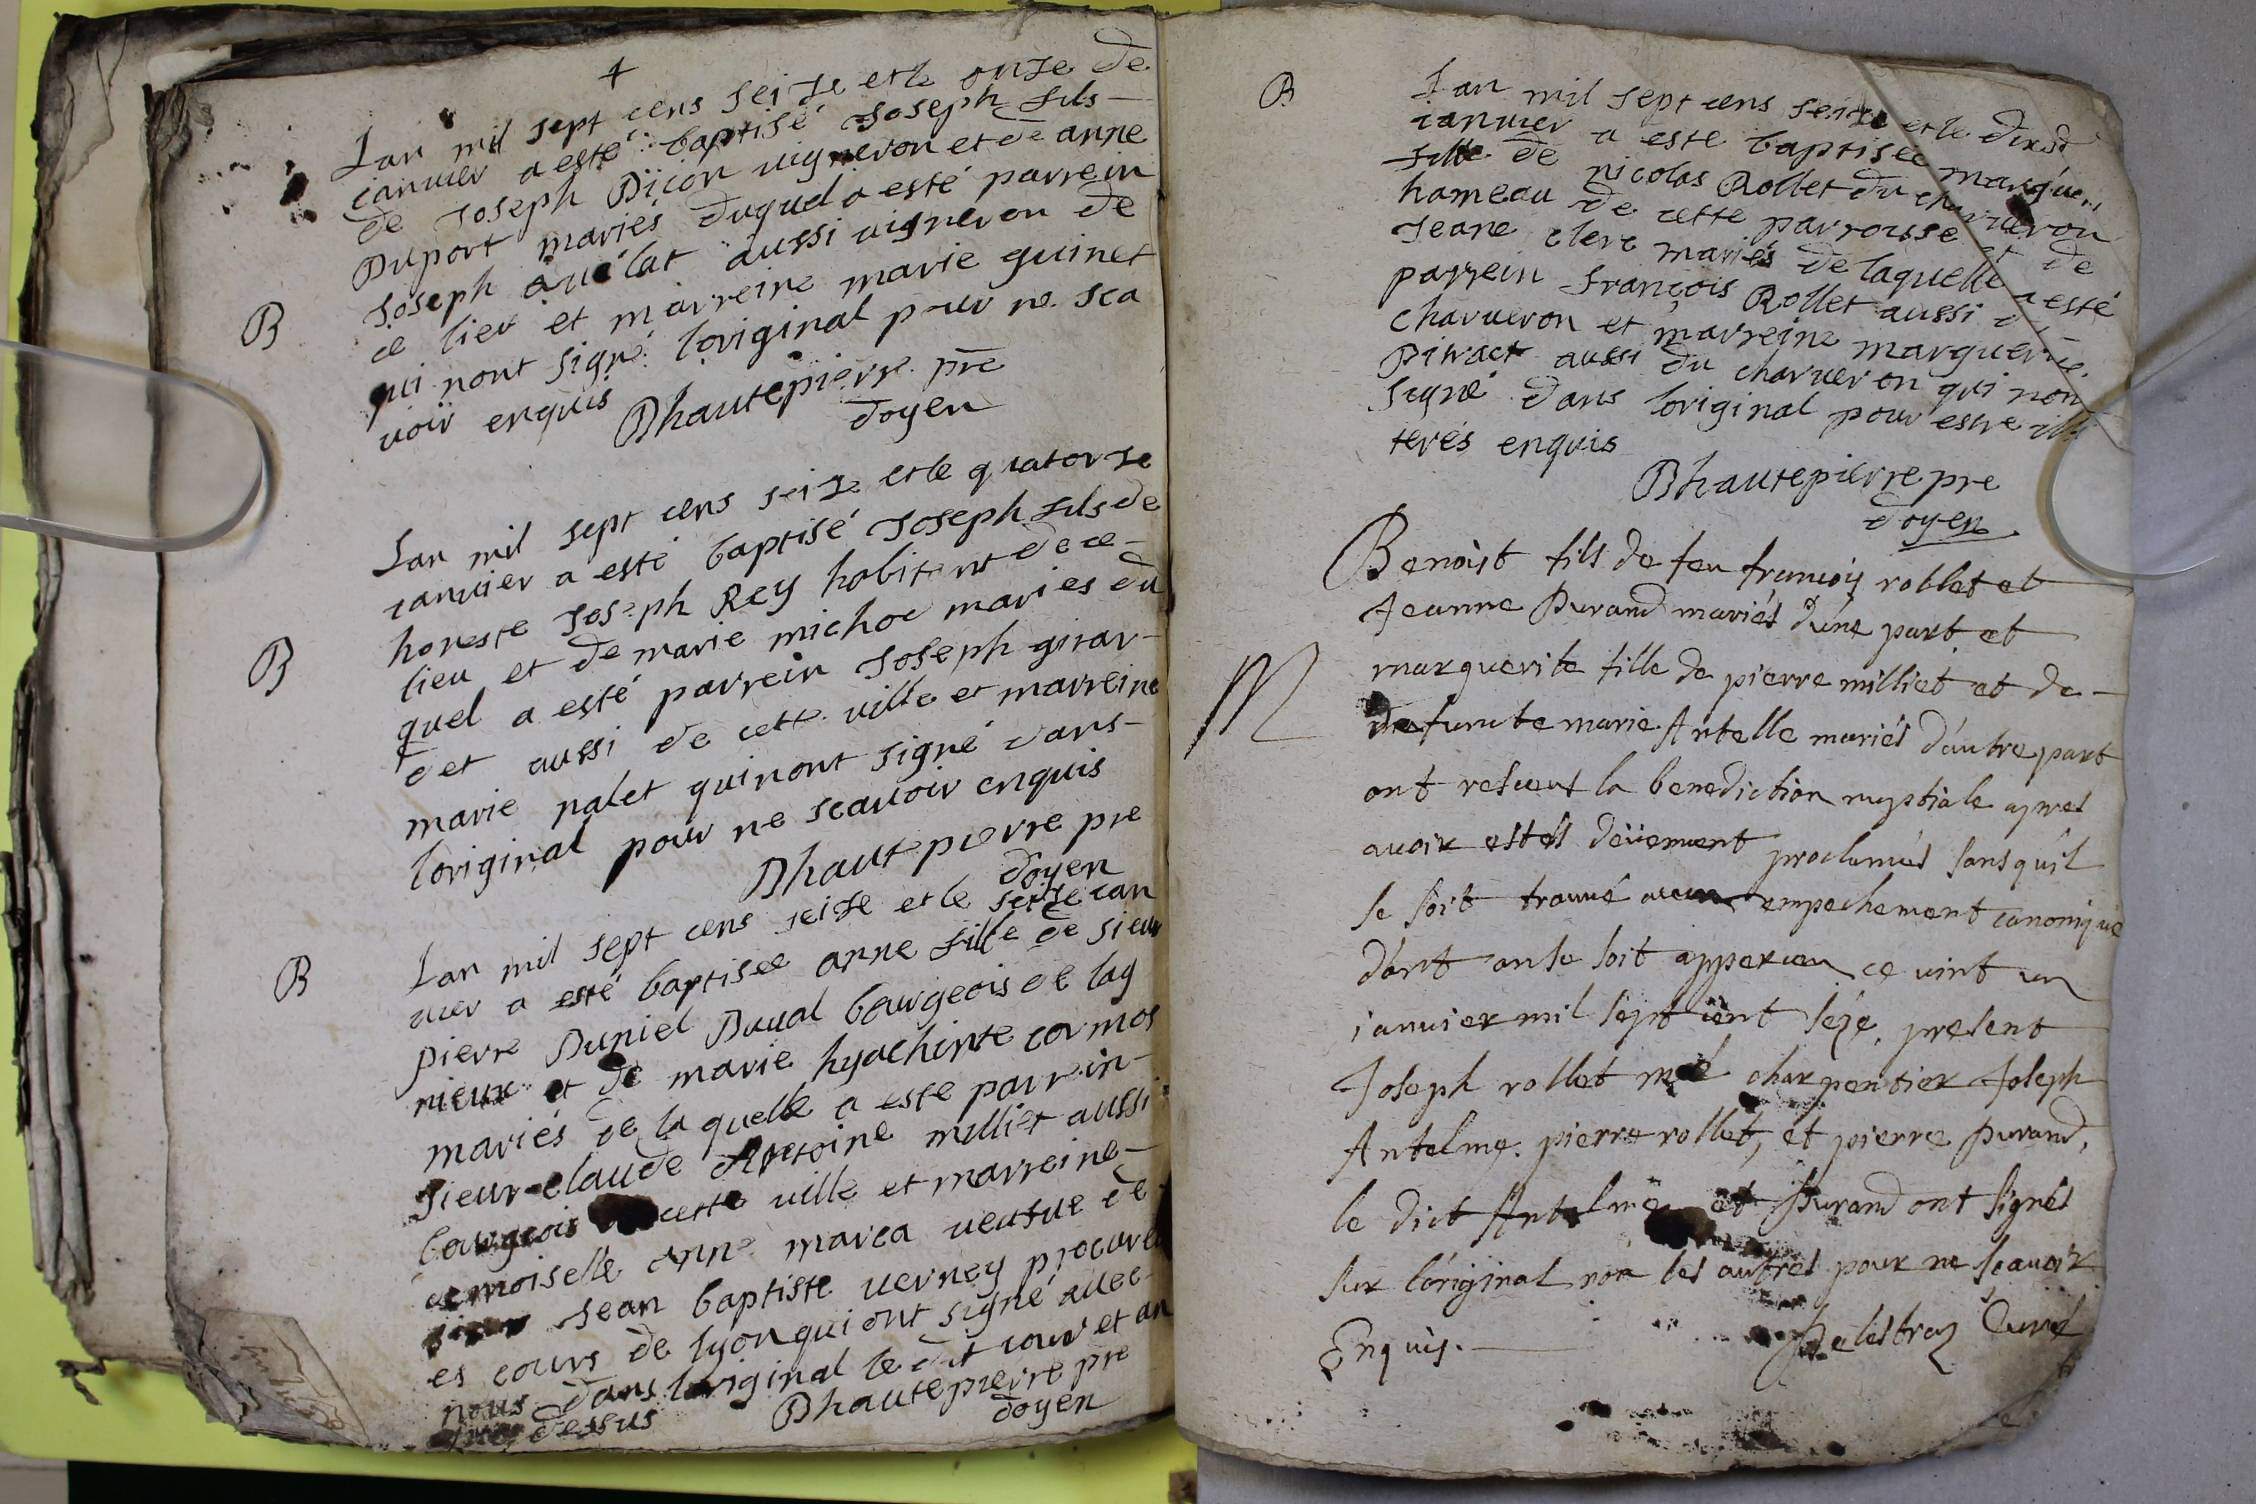 +
Lan mil sept cens seize et le onze de
ianvier a esté baptisé Joseph fils
de Joseph Dijon vigneron et de anne
Duport mariés duquel a esté parrein
Joseph aussi vigneron de
ce lieu et marreine marie guinet
qui nont signé loriginal pour ne sca
B
voir enquis
Dhautepierre pre
doyen
Lan mil sept cens seize et le quatorze
ianvier a esté baptisé Joseph fils de
honeste Joseph Rey habitant de ce
B
lieu et de marie michoc mariés du
quel a esté parrein Joseph girar
det aussi de cette ville et marreine
marie palet qui nont signé dans
loriginal pour ne scavoir enquis
Dhautepierre pre
doyen
B
Lan mil sept cens seize et le seize ian
vier a esté baptisee anne fille de sieur
pierre Duniel Duval bourgeois de lag
nieux et de marie hyachinte cormos
mariés de la quelle a este parrein
sieur claude Antoine milliet aussi
bourgeois cette ville et marreine
demoiselle anne marca veufue de
sieur Jean baptiste verney procureu
es cours de lyon qui ont signé avec
nous dans loriginal le dit iour et an
que dessus
Dhautepierre pre
doyen
B
Lan mil sept cens seize et le dixse
ianvier a este baptisee marguer
fille de nicolas Rollet du charveron
hameau de cette parroisse et de
Jeane clerc mariés de laquelle a esté
parrein françois Rollet aussi du
charveron et marreine marguerite
Pitract aussi du charveron qui non
signé dans loriginal pour estre illi
terés enquis
Dhautepierre pre
doyen
Benoist fils de feu francois rollet et
Jeanne Durand mariés d'une part et
M
marguerite fille de pierre milliet et de
defuncte marie Antelle mariés d'autre part
ont reseuent la benediction nuptiale apres
avoir estés deüement proclamés sans qu'il
se soit trouvé aucun empechement canonique
dont on se soit apperceu ce vint un
ianvier mil sept cent séze, present
Joseph rollet me charpentier Joseph
Antelme. pierre rollet, et pierre Durand,
le dict Antelme et Durand ont signés
sur l'original non les autres pour ne scavoir
Enquis.
Delestraz Curé